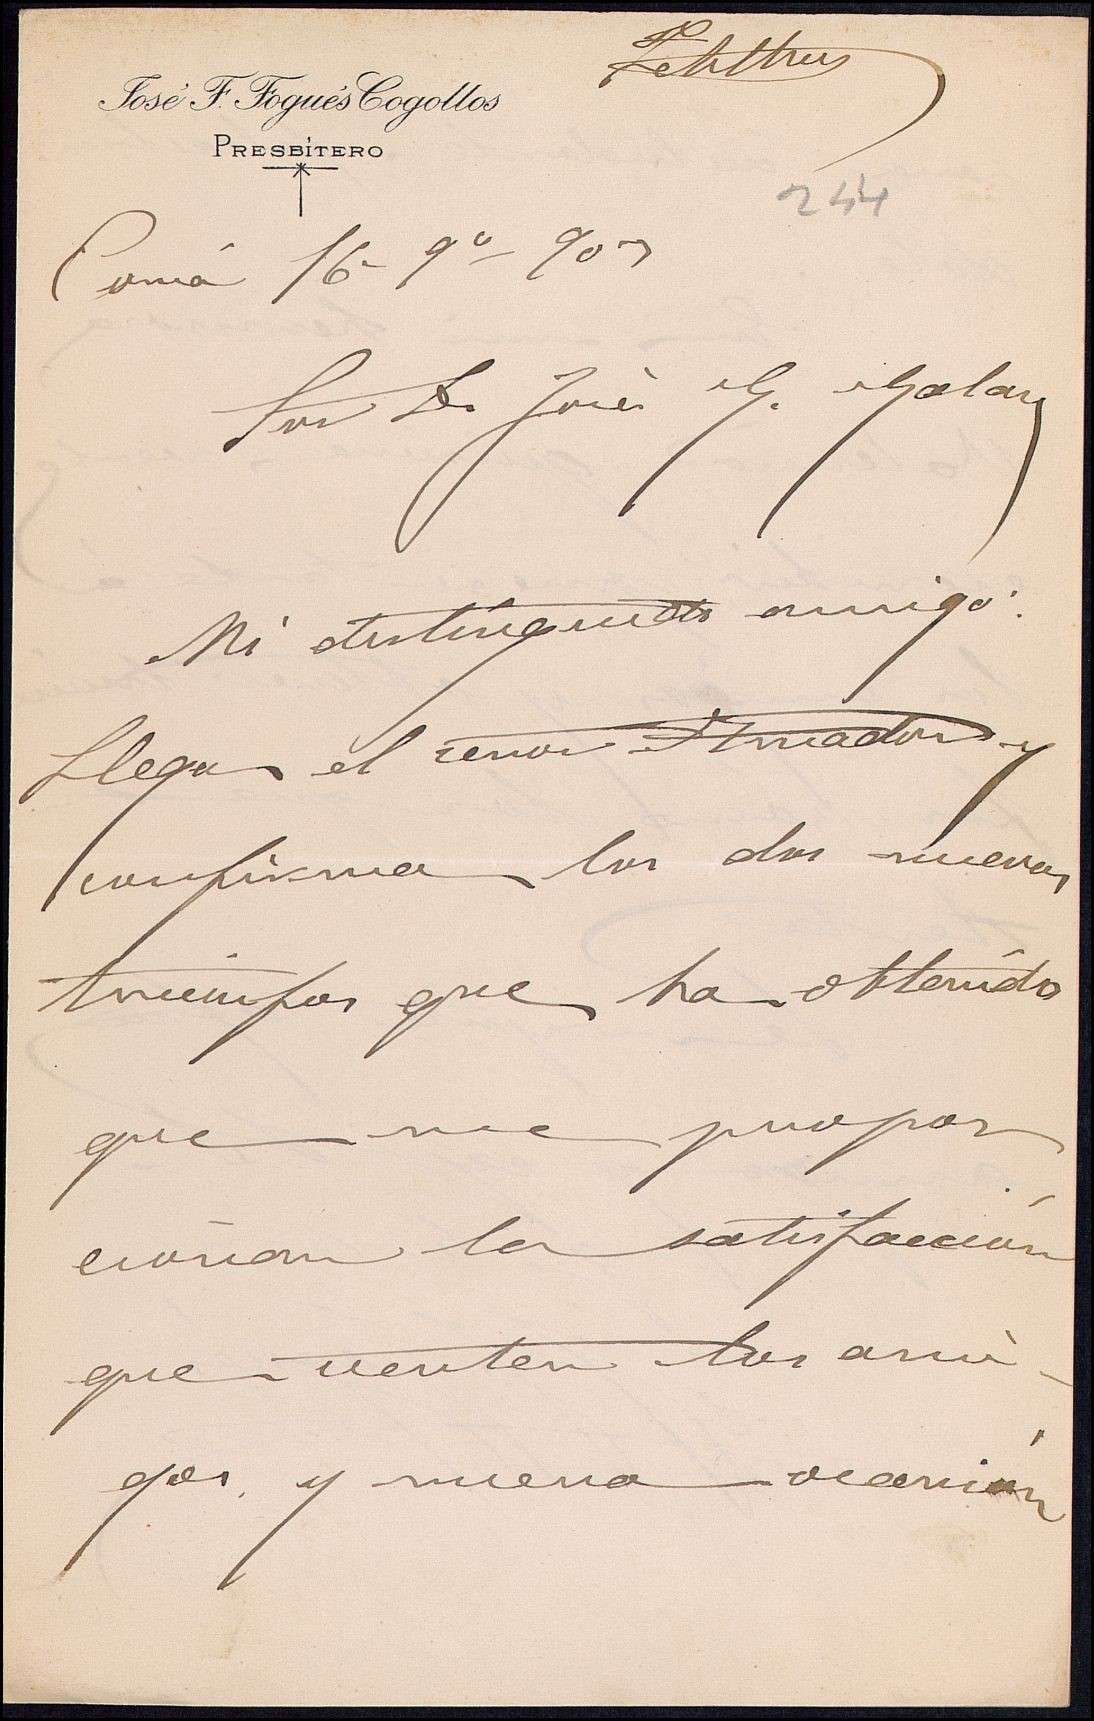 José F. Fogués Cogollos
PRESBÍTERO
244
16 - 9º - 907
Sor D. José G. Galan
Mi distinguido amigo:
Llega el senor Amador y
confirma los dos nuevos
triunfos que ha obtenido
que me propor
cionan la satisfacción
que sienten los ami-
gos, y nueva ocasión